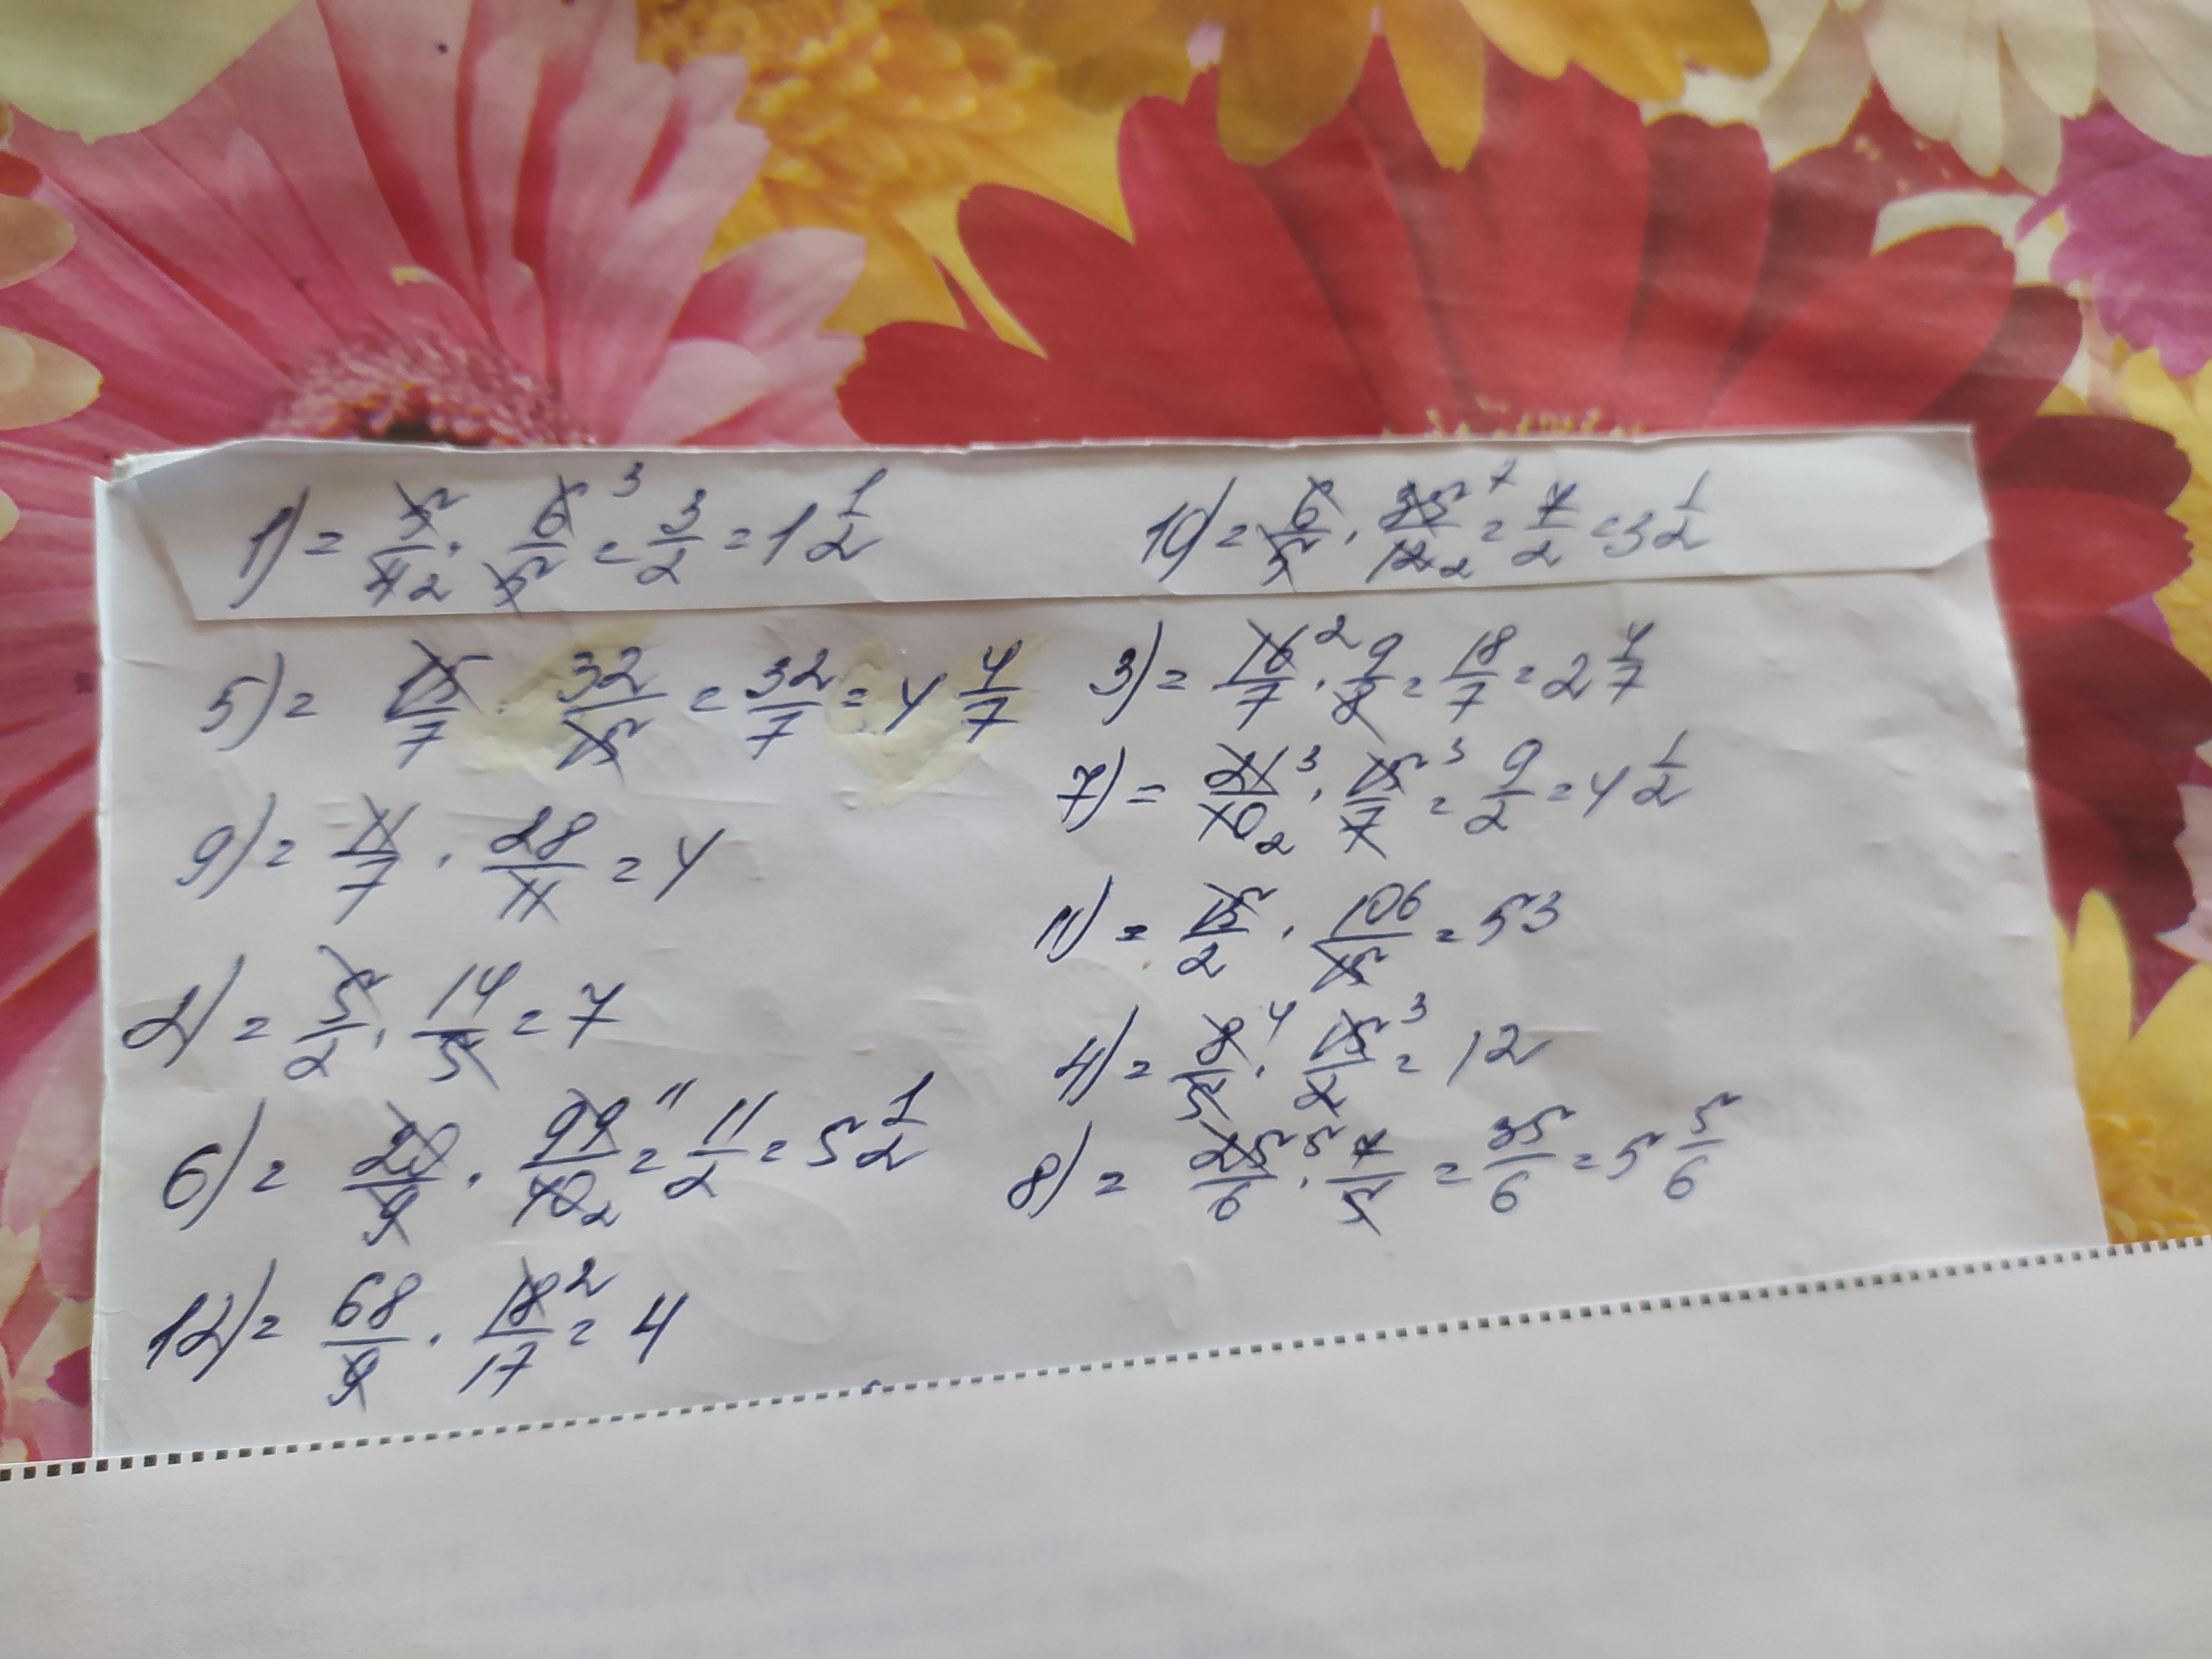 1) = 5/4 2 · 6/5 3 = 3/2 = 1 1/2
10) = 6/5 · 35/12 7 2 = 7/2 = 3 1/2
5) = 15/7 · 32/15 = 32/7 = 4 4/7
3) = 16/7 2 · 9/8 = 18/7 = 2 4/7
7) = 21/10 3 2 · 15/7 3 = 9/2 = 4 1/2
9) = 11/7 · 28/11 = 4
11) = 15/2 · 106/15 = 53
2) = 5/2 · 14/5 = 7
4) = 8/5 4 · 15/2 3 = 12
6) = 20/9 · 99/40 11 2 = 11/2 = 5 1/2
8) = 25/6 5 · 7/5 = 35/6 = 5 5/6
12) = 68/9 · 18/17 2 = 4